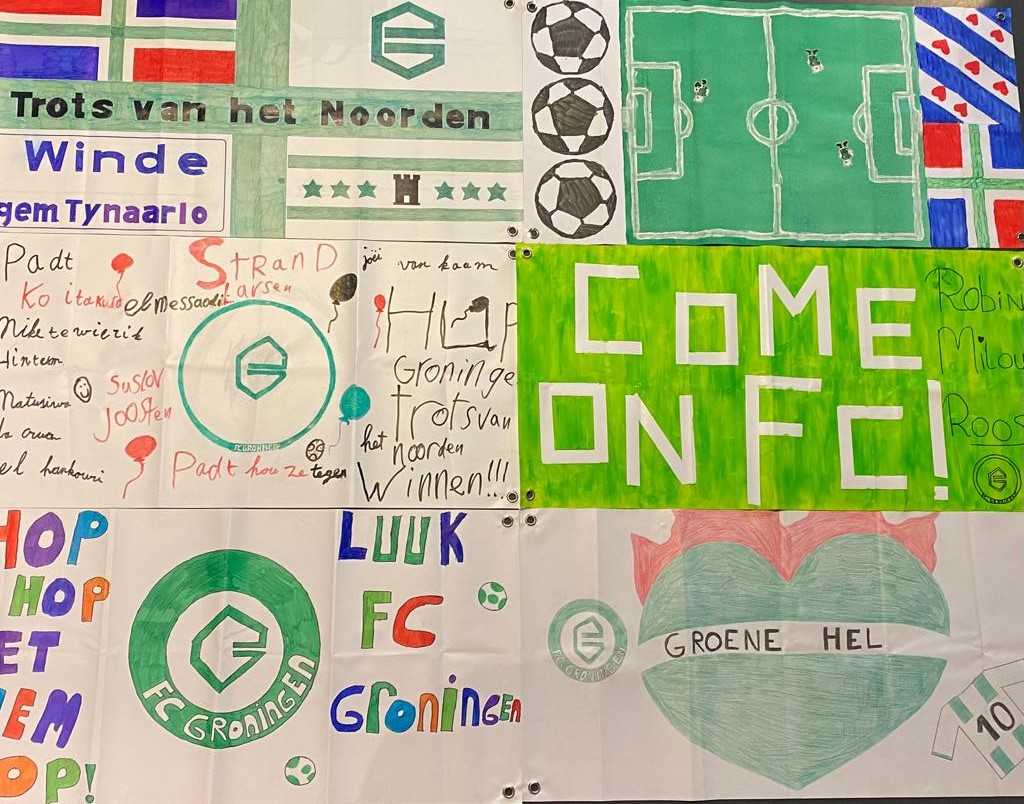 Trots van het Noorden
Winde
gem Tynaarlo
Padt
Ko itakura
el messaoudi
Mike te wierik
Hintum
Matusiwa
el hankouri
STRAND
Larsen
SUSLOV
JOOSTEN
FC GRONINGEN
Padt hou ze tegen
joël van kaam
HUP
Groninge
trots van
het noorden
Winnen!!!
COME
ON FC!
Robin
Milou
Roos
HOP
HOP
ET
EM
OP!
FC GRONINGEN
LUUK
FC
GroninGEn
FC GRONINGEN
GROENE HEL
10